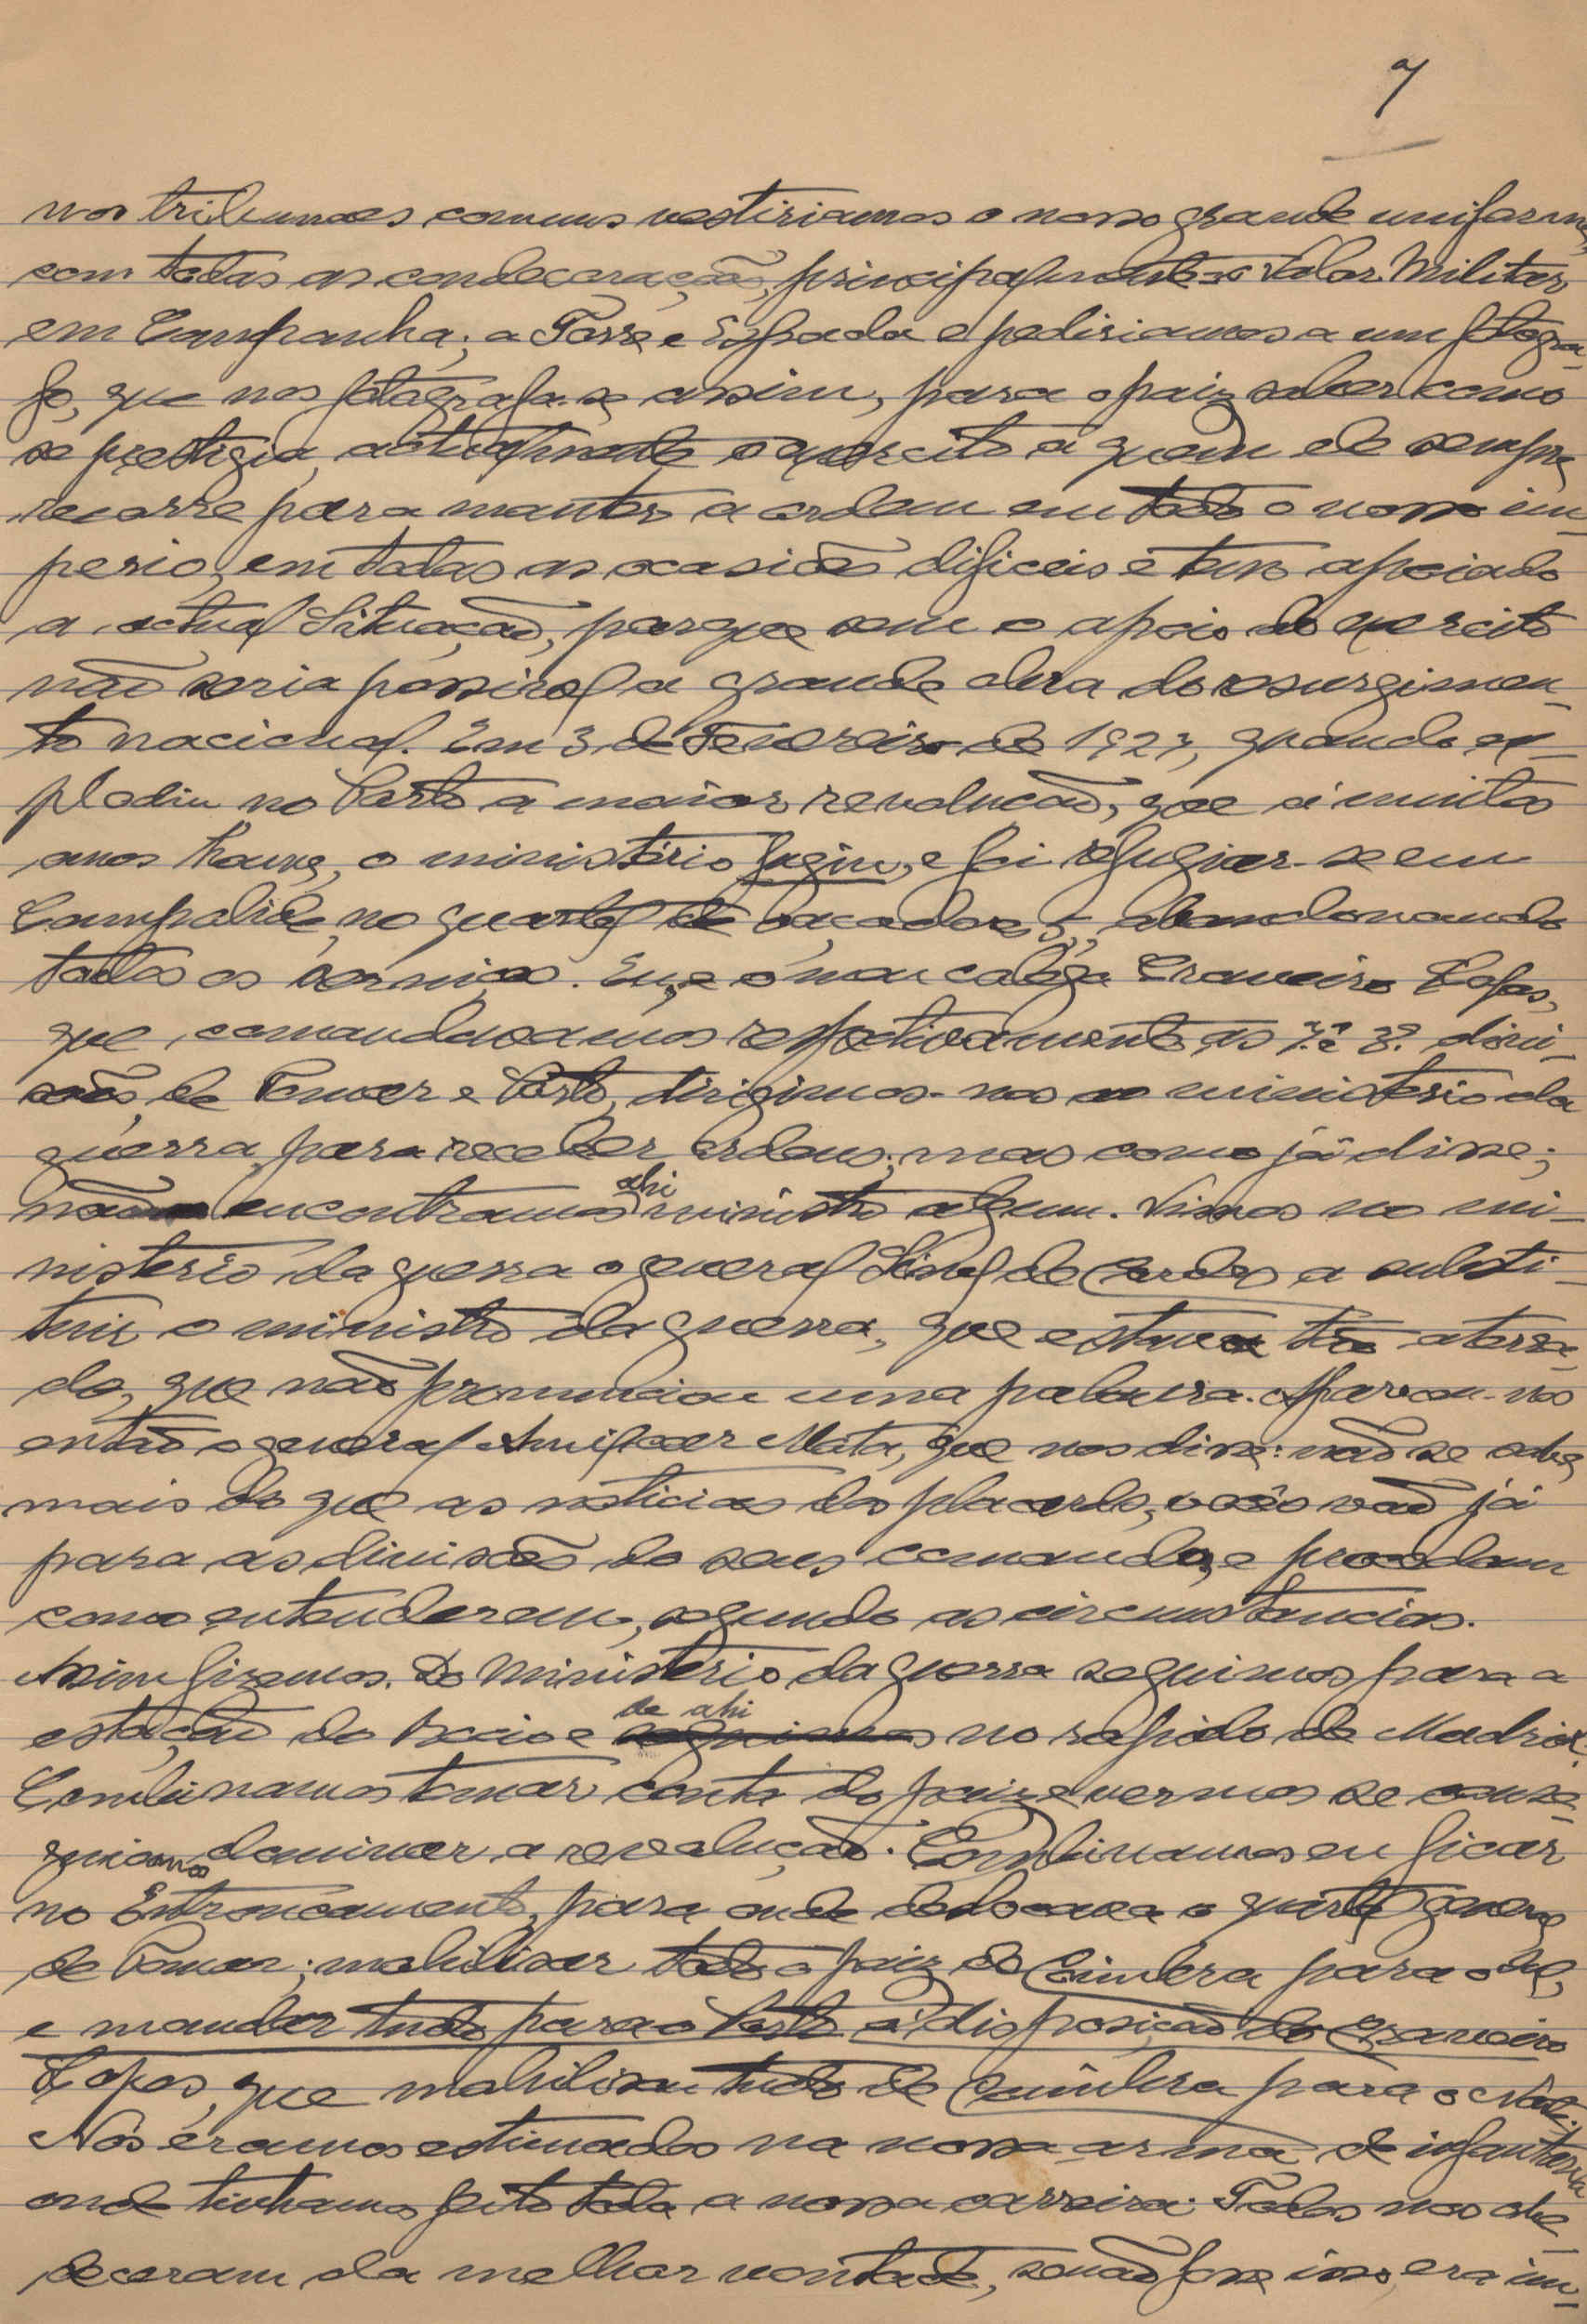 7
nos tribunaes comuns vestiriamos o nosso grande uniforme,
com todas as condecorações, principalmente o Valor Militar
em Campanha; a Torre e Espada e pediriamos a um fotogra-
fo, que nos fotografa-se assim, para o paiz saber como
se prestigia, actualmente o exercito a quem ele sempre
recorre para manter a ordem em todo o nosso im-
perio, em todas as ocasiões dificeis e tem apoiado
a actual Situação, porque sem o apoio do exercito
não seria possivel a grande obra do resurgimen-
to nacional. Em 3 de Fevereiro de 1927, quando ex-
plodiu no Porto a maior revolucão, que á muitos
anos houve, o ministério fugiu, e foi refugiar-se em
Campolide, no quartel de caçadores 5, abandonando
todos os serviços. Eu, e o meu colega Craveiro Lopes,
que comandavamos respectivamente as 7.ª e 3.ª divi-
sões, de Tomar e Porto, dirigimos-nos ao ministerio da
guerra para receber ordens; mas como já disse;
não encontramos ahi ministro algum. Vimos no mi-
nisterio da guerra o general Sinel de Cordes a substi-
tuir o ministro da guerra, que estava tão aterra-
do, que não pronunciou uma palavra. Apareceu-nos
então o general Amilcar Mota, que nos disse: não se sabe
mais do que as noticias dos placards, vocês vão já
para as divisões do seus comandos, e procedam
como entenderem, segundo as circunstancias.
Assim fizemos. Do Ministerio da guerra seguimos para a
estação do Rocio e de ahi no rapido de Madrid.
Combinamos tomar conta do paiz e vermos se conse-
guiamos dominar a revolução. Combinamos eu ficar
no Entroncamento, para onde deslocava o quartel general
de Tomar; mobilisar todo o paiz de Coimbra para o Sul,
e mandar tudo para o Porto á disposição do Craveiro
Lopes, que mobilisou tudo de Coimbra para o Norte.
Nós éramos estimados na nossa arma de infantaria
onde tinhamos feito toda a nossa carreira. Todos nos obe-
deceram da melhor vontade, se não fosse isso, era im-